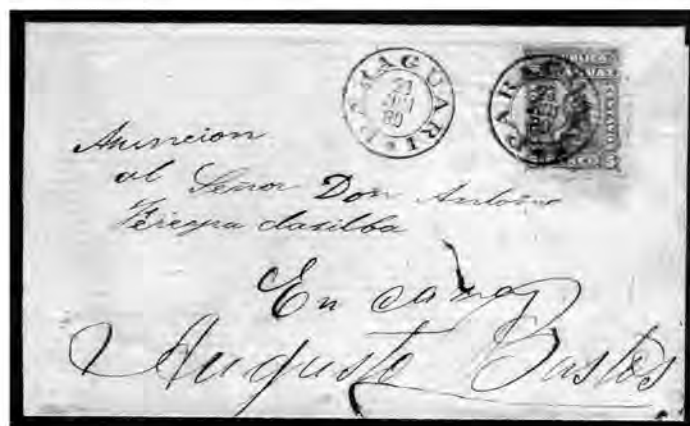 PARAGUARI
21
JUN
80
Asuncion
al Señor Don Antoino
Fereyra dasilba
En casa
Augusto Bastos